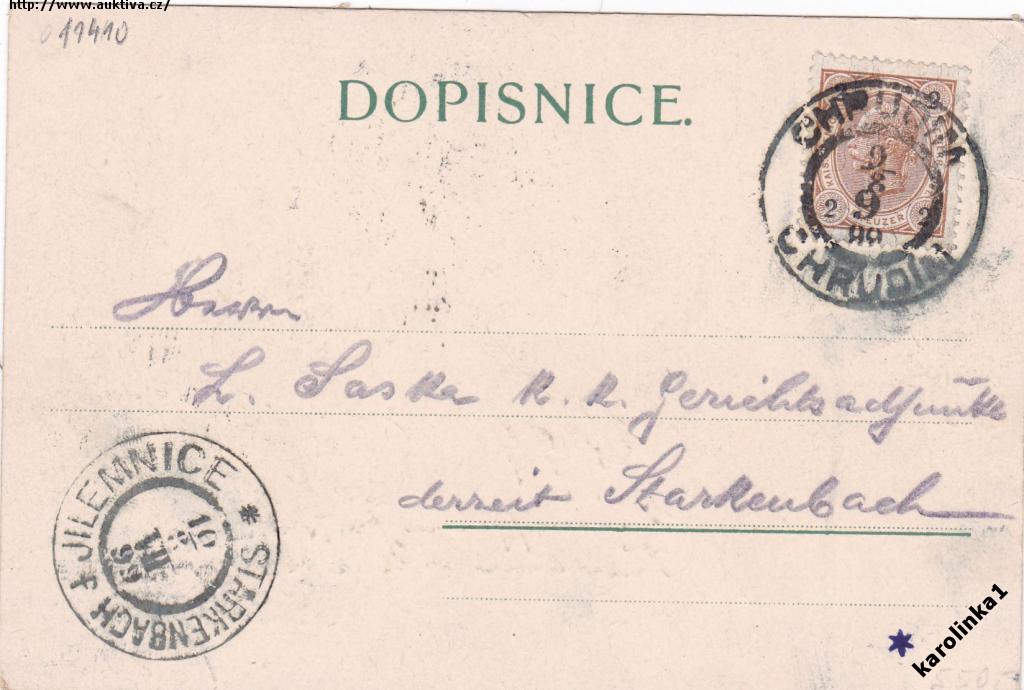 http://www.auktiva.cz/
011410
DOPISNICE.
2
2 KREUZER 2
CHRUDIM
9
9
99
CHRUDIM
Herrn
L. Saska k. k. Gerichtsadjunkt
derzeit Starkenbach
JILEMNICE * STARKENBACH +
10
VIII
99
karolinka1
550,-